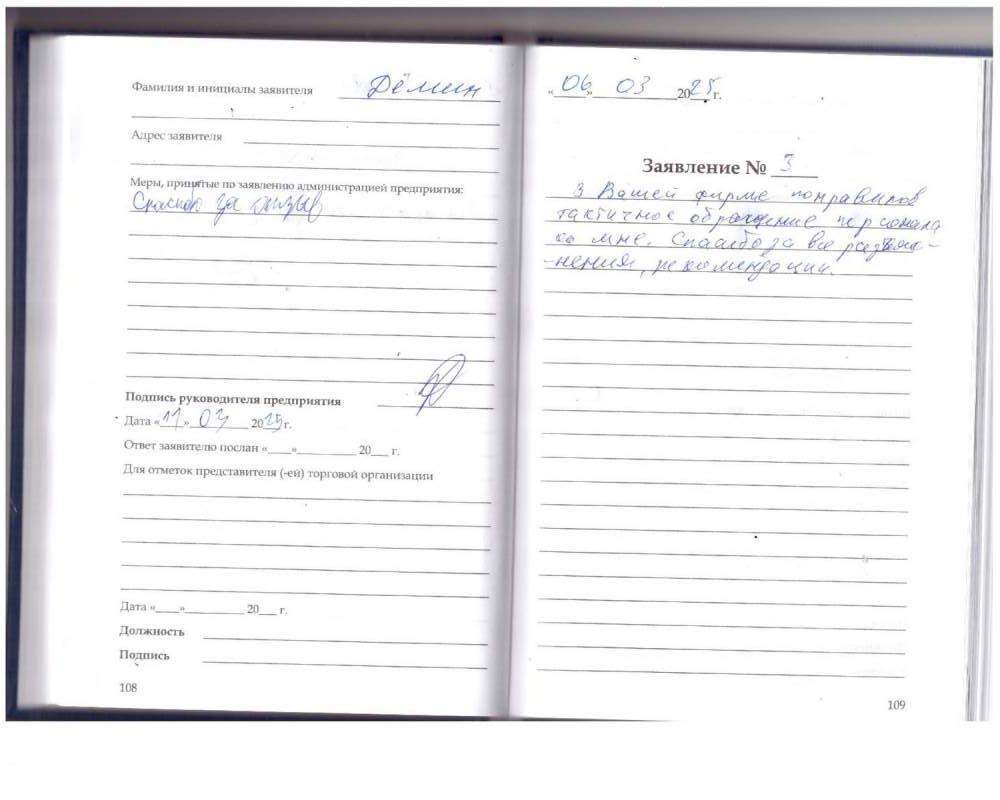 Фамилия и инициалы заявителя Дёмин
Адрес заявителя
Меры, принятые по заявлению администрацией предприятия:
Спасибо за отзыв
Подпись руководителя предприятия
Дата «11» 03 2025 г.
Ответ заявителю послан «___»_________ 20___ г.
Для отметок представителя (-ей) торговой организации
Дата «___»_________ 20___ г.
Должность
Подпись
108
«06» 03 2025 г.
Заявление № 3
З Вашей фирме понравилов
тактичное обращение персонала
ко мне. Спасибо за все разъяс-
-нения, рекомендации.
109